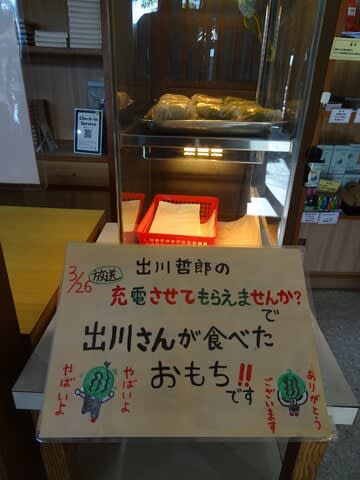 Check-in
Service
3/26 放送
出川哲郎の
充電させてもらえませんか?
で
出川さんが食べた
おもち!!
です
やばいよ
やばいよ
ありがとう
ございます